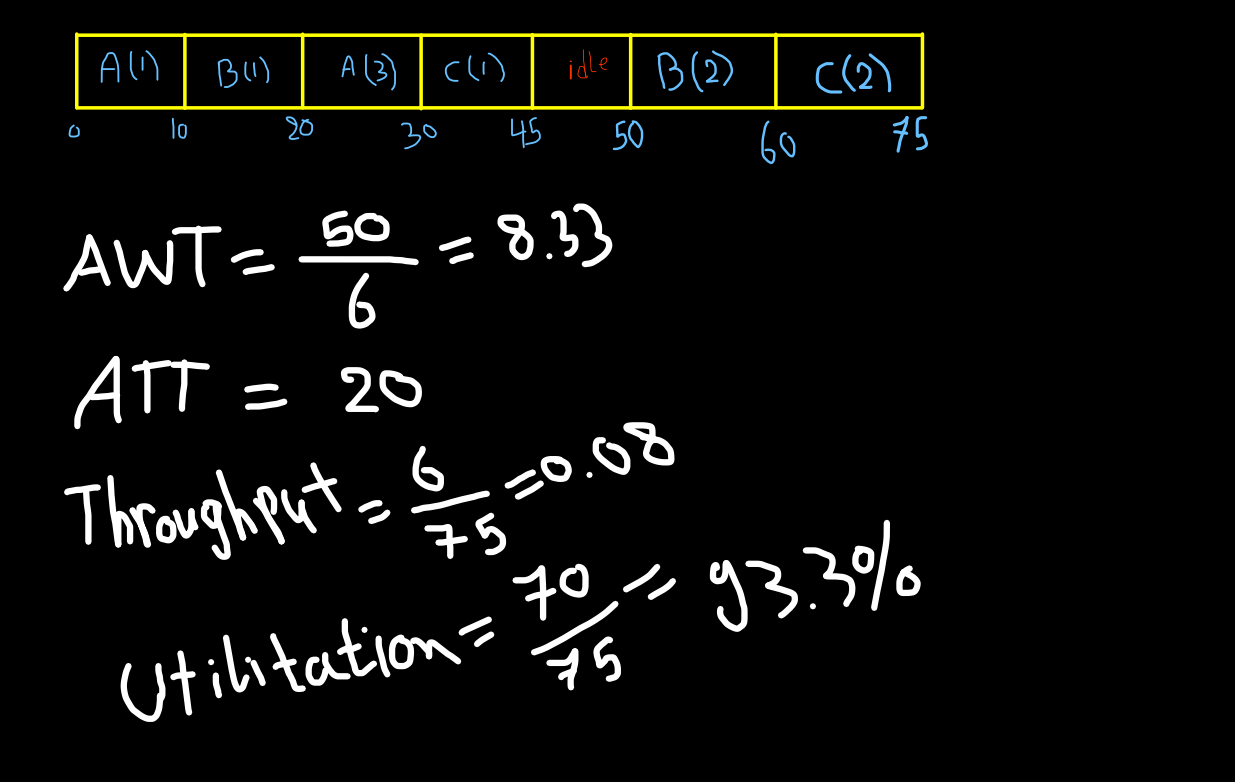 A(1) B(1) A(3) C(1) idle B(2) C(2)
0 10 20 30 45 50 60 75
AWT = 50/6 = 8.33
ATT = 20
Throughput = 6/75 = 0.08
Utilitation = 70/75 = 93.3%